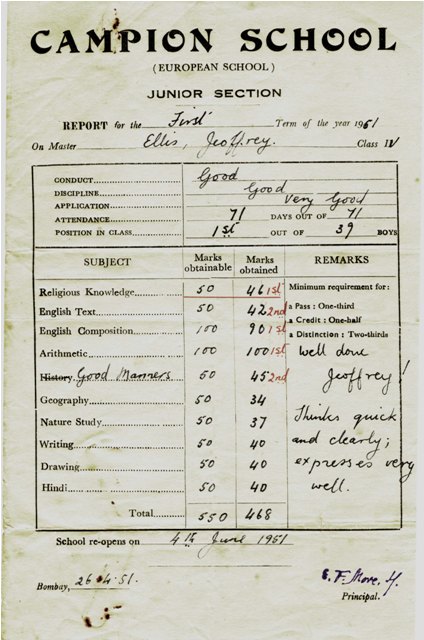 CAMPION SCHOOL
(EUROPEAN SCHOOL)
JUNIOR SECTION
REPORT for the First Term of the year 1951
On Master Ellis, Geoffrey. Class IV
CONDUCT Good
DISCIPLINE Good
APPLICATION Very Good
ATTENDANCE 71 DAYS OUT OF 71
POSITION IN CLASS 1st OUT OF 39 BOYS
SUBJECT Marks obtainable Marks obtained REMARKS
Religious Knowledge 50 46 1st Minimum requirement for:
English Text 50 42 2nd a Pass : One-third
English Composition 100 90 1st a Credit : One-half
a Distinction : Two-thirds
Arithmetic 100 100 1st Well done
History Good Manners 50 45 2nd Geoffrey!
Geography 50 34
Nature Study 50 37 Thinks quick
Writing 50 40 and clearly;
Drawing 50 40 expresses very
Hindi 50 40 well.
Total 550 468
School re-opens on 4th June 1951
Bombay, 26.4.51.
Principal.